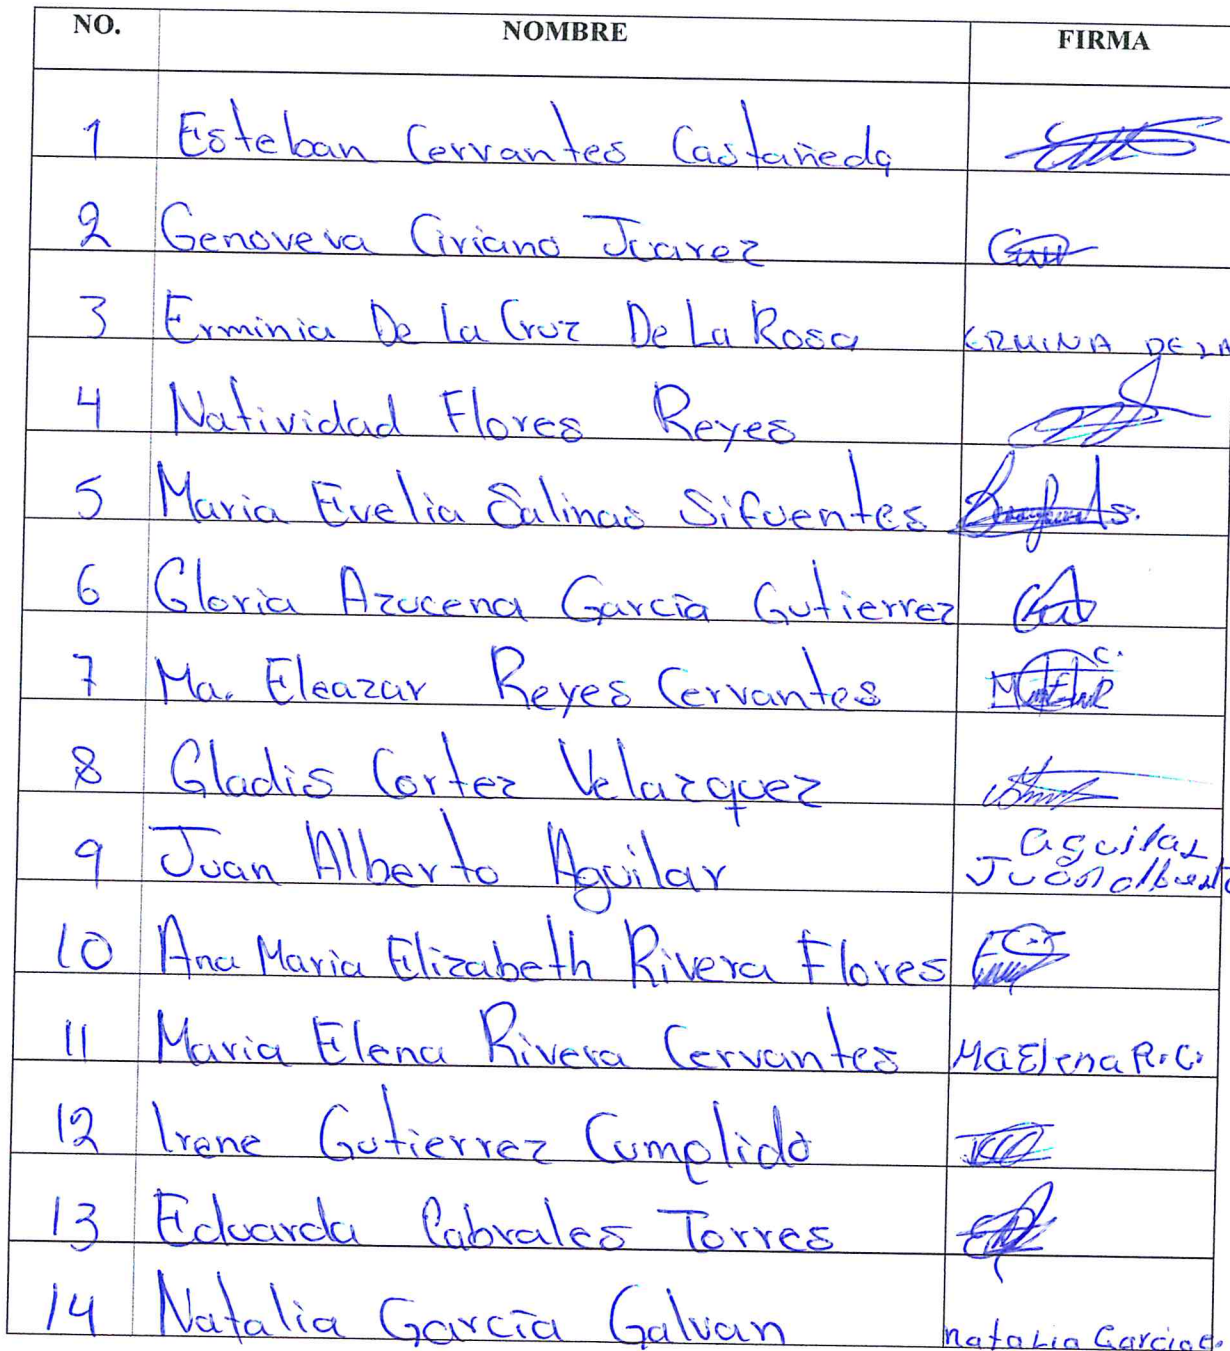 NO. NOMBRE FIRMA
1 Esteban Cervantes Castañeda
2 Genoveva Ciriano Juarez
3 Erminia De La Cruz De La Rosa ERMINA DE LA
4 Natividad Flores Reyes
5 Maria Evelia Salinas Sifuentes
6 Gloria Azucena García Gutierrez
7 Ma. Eleazar Reyes Cervantes
8 Gladis Cortez Velazquez
9 Juan Alberto Aguilar aguilar
Juan alberto
10 Ana Maria Elizabeth Rivera Flores
11 Maria Elena Rivera Cervantes Ma Elena R.C.
12 Irene Gutierrez Cumplido
13 Eduarda Cabrales Torres
14 Natalia García Galvan natalia Garcia G.